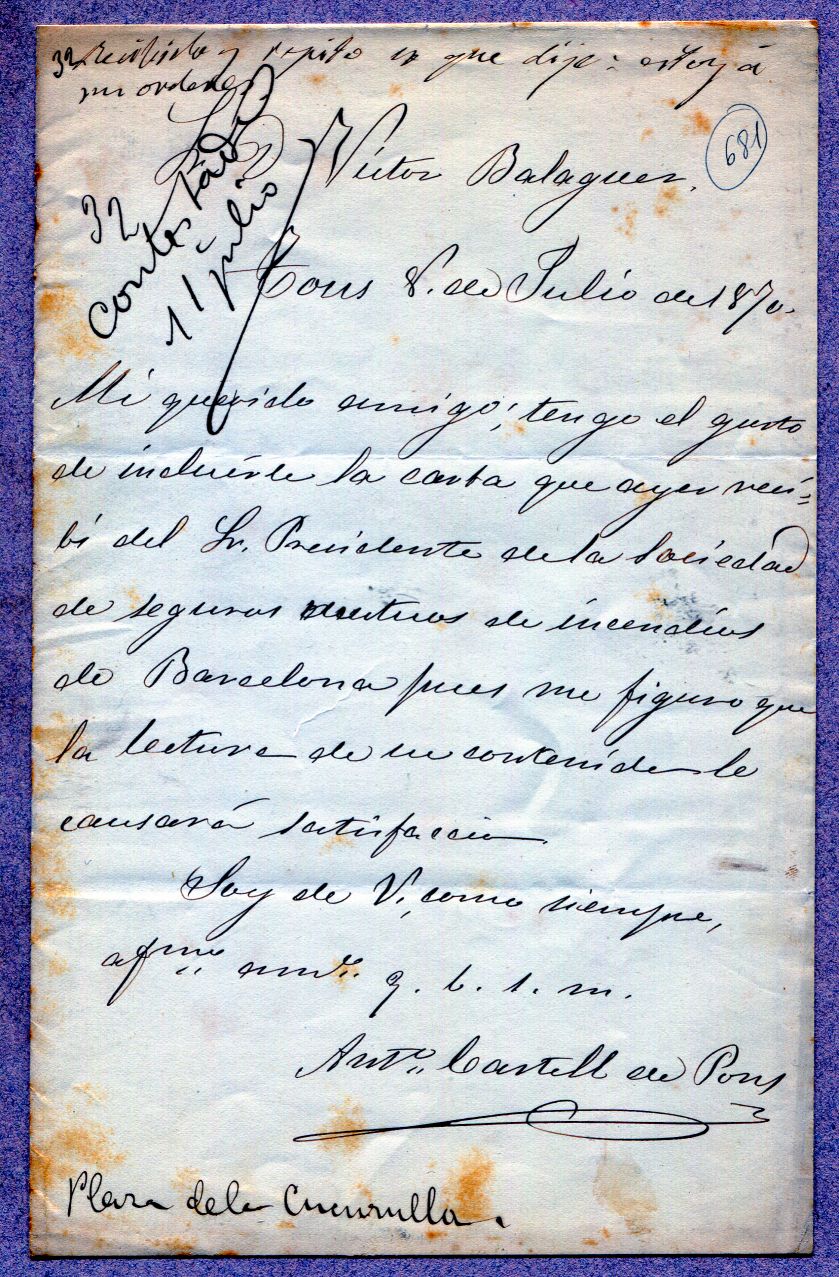 32 Recibida y repito lo que dije: estoy á
sus ordenes
681
Sr. D. Victor Balaguer.
32
contestada
11 julio
Tous 8. de Julio de 1870.
Mi querido amigo; tengo el gusto
de incluirle la carta que ayer reci=
bí del Sr. Presidente de la Sociedad
de seguros mutuos de incendios
de Barcelona pues me figuro que
la lectura de su contenido le
causará satisfaccion.
Soy de V., como siempre,
afmo. amo. q. b. s. m.
Anto. Castell de Pons
Plaza de la Cucurulla.